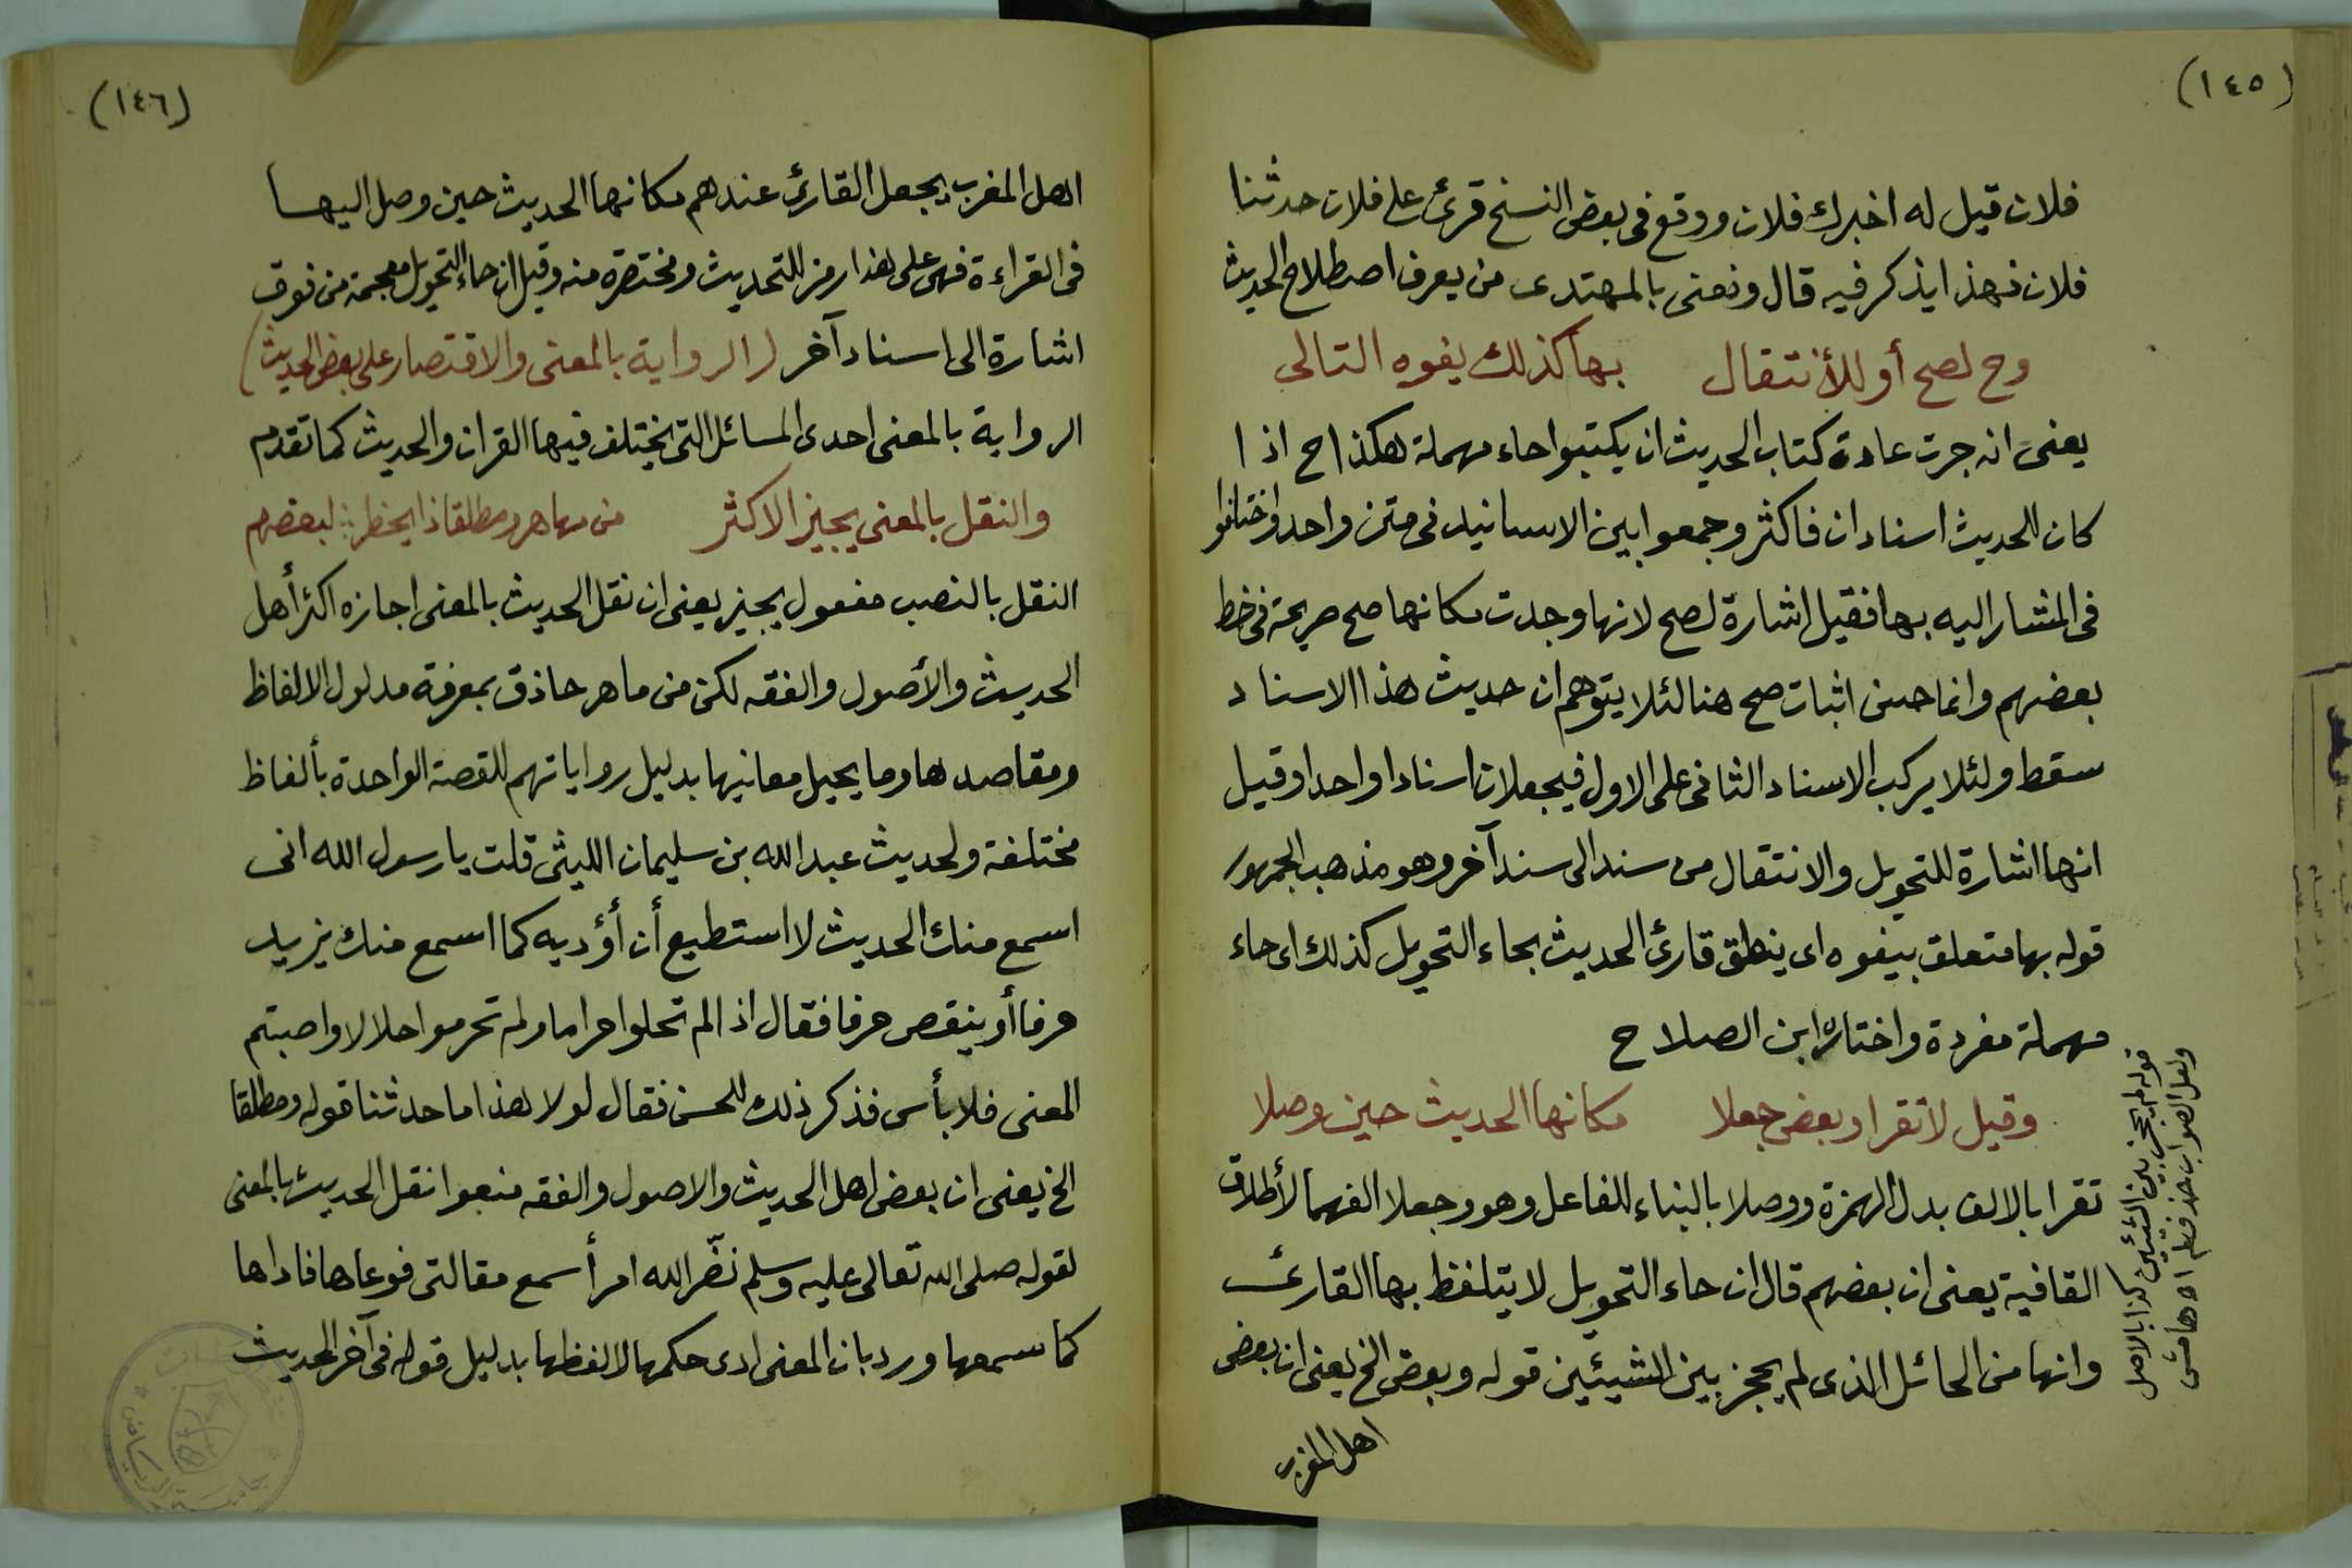 (١٤٥)
فلان قيل له اخبرك فلان ووقع فى بعض النسخ قرئ على فلان حدثنا
فلان فهذا يذكر فيه قال ونعنى بالمهتدى من يعرف اصطلاح الحديث
وح لصح أو للأنتقال بها كذلك يفوه التالى
يعنى انه جرت عادة كتاب الحديث ان يكتبوا حاء مهملة هكذا ح اذا
كان للحديث اسنادان فاكثر وجمعوا بين الاسانيد فى متن واحد واختلفوا
فى المشار اليه بها فقيل اشارة لصح لانها وجدت مكانها صح صريحة فى خط
بعضهم وانما حسن اثبات صح هنا لئلا يتوهم ان حديث هذا الاسناد
سقط ولئلا يركب الاسناد الثانى على الاول فيجعلان اسنادا واحدا وقيل
انها اشارة للتحويل والانتقال من سند الى سند آخر وهو مذهب الجمهور
قوله بها متعلق بيفوه اى ينطق قارئ الحديث بحاء التحويل كذلك اى حاء
مهملة مفردة واختاره ابن الصلاح
وقيل لا تقرا وبعض جعلا مكانها الحديث حين وصلا
تقرا بالالف بدل الهمزة ووصلا بالبناء للفاعل وهو وجعلا الفهما لأطلاق
القافية يعنى ان بعضهم قال ان حاء التحويل لا يتلفظ بها القارئ
وانها من الحائل الذى لم يحجز بين الشيئين قوله وبعض الخ يعنى ان بعض
اهل المغرب
قوله لم يحجز بين الشيئين كذا بالاصل
ولعل الصواب حذف لم اه هامش
(١٤٦)
اهل المغرب يجعل القارئ عندهم مكانها الحديث حين وصل اليها
فى القراءة فهى على هذا رمز للتحديث ومختصرة منه وقيل ان حاء التحويل معجمة من فوق
اشارة الى اسناد آخر (الرواية بالمعنى والاقتصار على بعض الحديث)
الرواية بالمعنى احدى المسائل التى يختلف فيها القران والحديث كما تقدم
والنقل بالمعنى يجيز الاكثر من ماهر ومطلقا ذا يحظر لبعضهم
النقل بالنصب مفعول يجيز يعنى ان نقل الحديث بالمعنى اجازه اكثر أهل
الحديث والأصول والفقه لكن من ماهر حاذق بمعرفة مدلول الالفاظ
ومقاصدها وما يحيل معانيها بدليل رواياتهم للقصة الواحدة بألفاظ
مختلفة ولحديث عبد الله بن سليمان الليثى قلت يا رسول الله انى
اسمع منك الحديث لا استطيع أن أؤديه كما اسمع منك يزيد
حرفا أو ينقص حرفا فقال اذا لم تحلوا حراما ولم تحرموا حلالا واصبتم
المعنى فلا بأس فذكر ذلك للحسن فقال لولا هذا ما حدثنا قوله ومطلقا
الخ يعنى ان بعض اهل الحديث والاصول والفقه منعوا نقل الحديث بالمعنى
لقوله صلى الله تعالى عليه وسلم نضّر الله امرأ سمع مقالتى فوعاها فاداها
كما سمعها ورد بان المعنى ادى حكمها لا لفظها بدليل قوله فى آخر الحديث